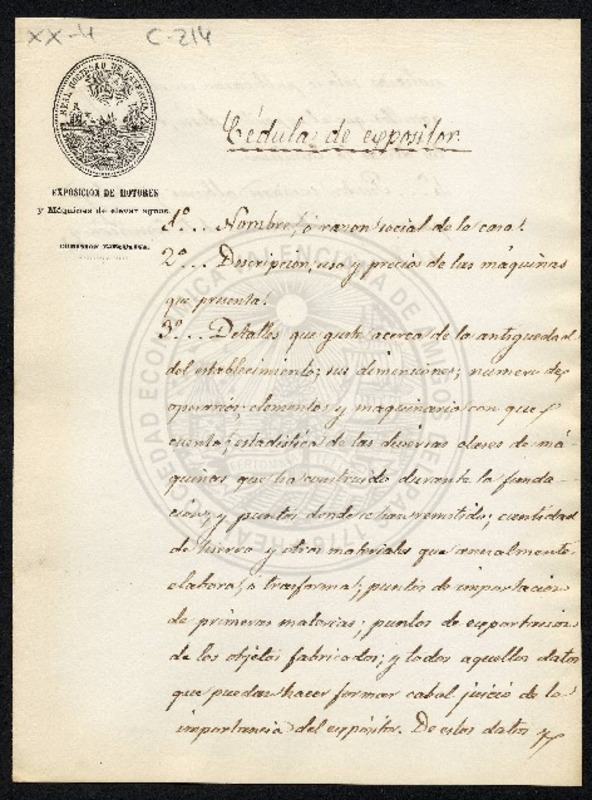 XX-4 C-214
REAL SOCIEDAD DE VALENCIA
Cédula de expositor.
EXPOSICION DE MOTORES
y Máquinas de elevar aguas.
COMISION EJECUTIVA.
1º... Nombre, ó razon social de la casa.
2º... Descripcion, uso y precios de las máquinas
que presenta.
3º... Detalles que guste acerca de la antiguedad
del establecimiento; sus dimensiones; numero de
operarios; elementos y maquinaria con que
cuenta; estadistica de las diversas clases de má-
quinas que ha construido durante la funda-
cion, y puntos donde se han remitido; cantidad
de hierro y otros materiales que anualmente
elabora, ó trasforma; puntos de importacion
de primeras materias; puntos de exportacion
de los objetos fabricados; y todos aquellos datos
que puedan hacer formar cabal juicio de la
importancia del expósitor. De estos datos
REAL SOCIEDAD ECONÓMICA VALENCIANA DE AMIGOS DEL PAÍS 1776